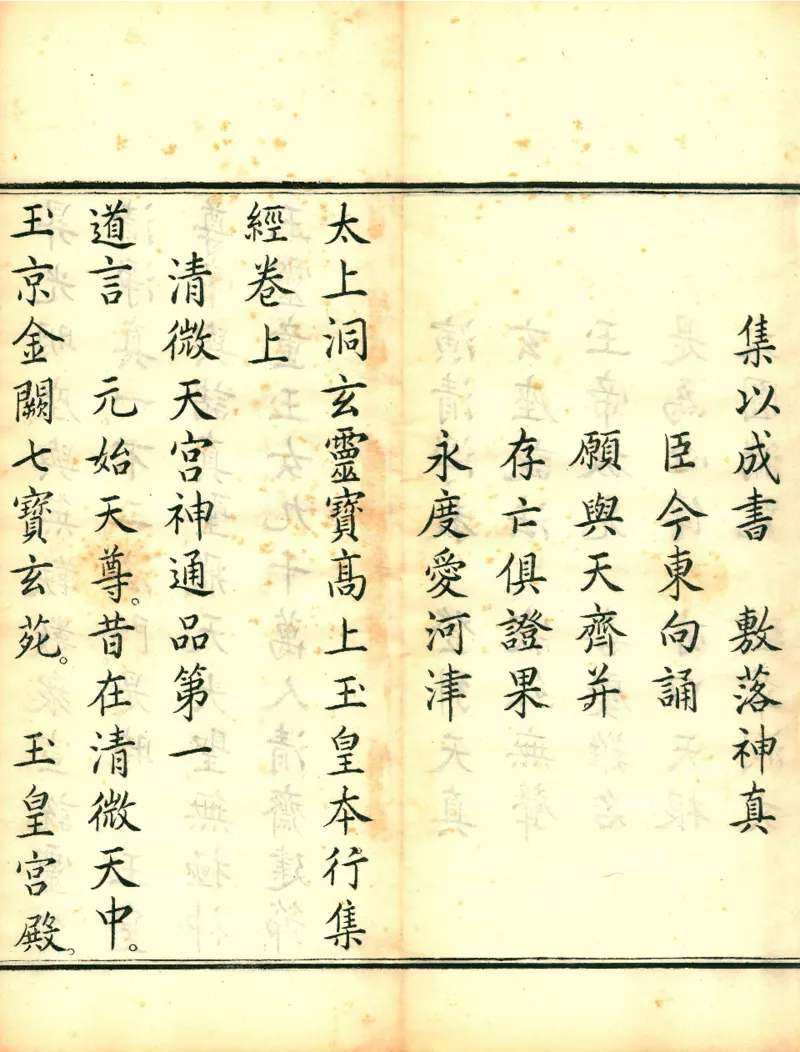 集以成書　敷落神真
臣今東向誦
願與天齊并
存亡俱證果
永度愛河津
太上洞玄靈寶高上玉皇本行集
經卷上
清微天宮神通品第一
道言　元始天尊。昔在清微天中。
玉京金闕七寶玄苑。　玉皇宮殿。